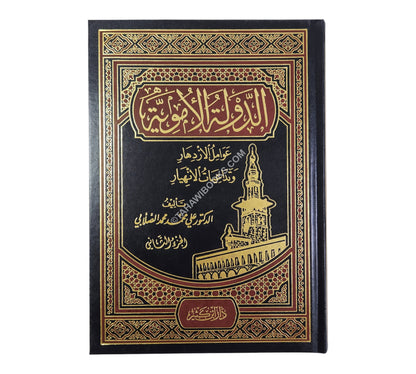 الدَّوْلَةُ الأُمَوِيَّة
عَوَامِلُ الازْدِهَارِ
وَتَدَاعِيَاتُ الانْهِيَارِ
تَأليف
الدكتور علي محمد محمد الصلابي
الجزء الثاني
دار ابن كثير